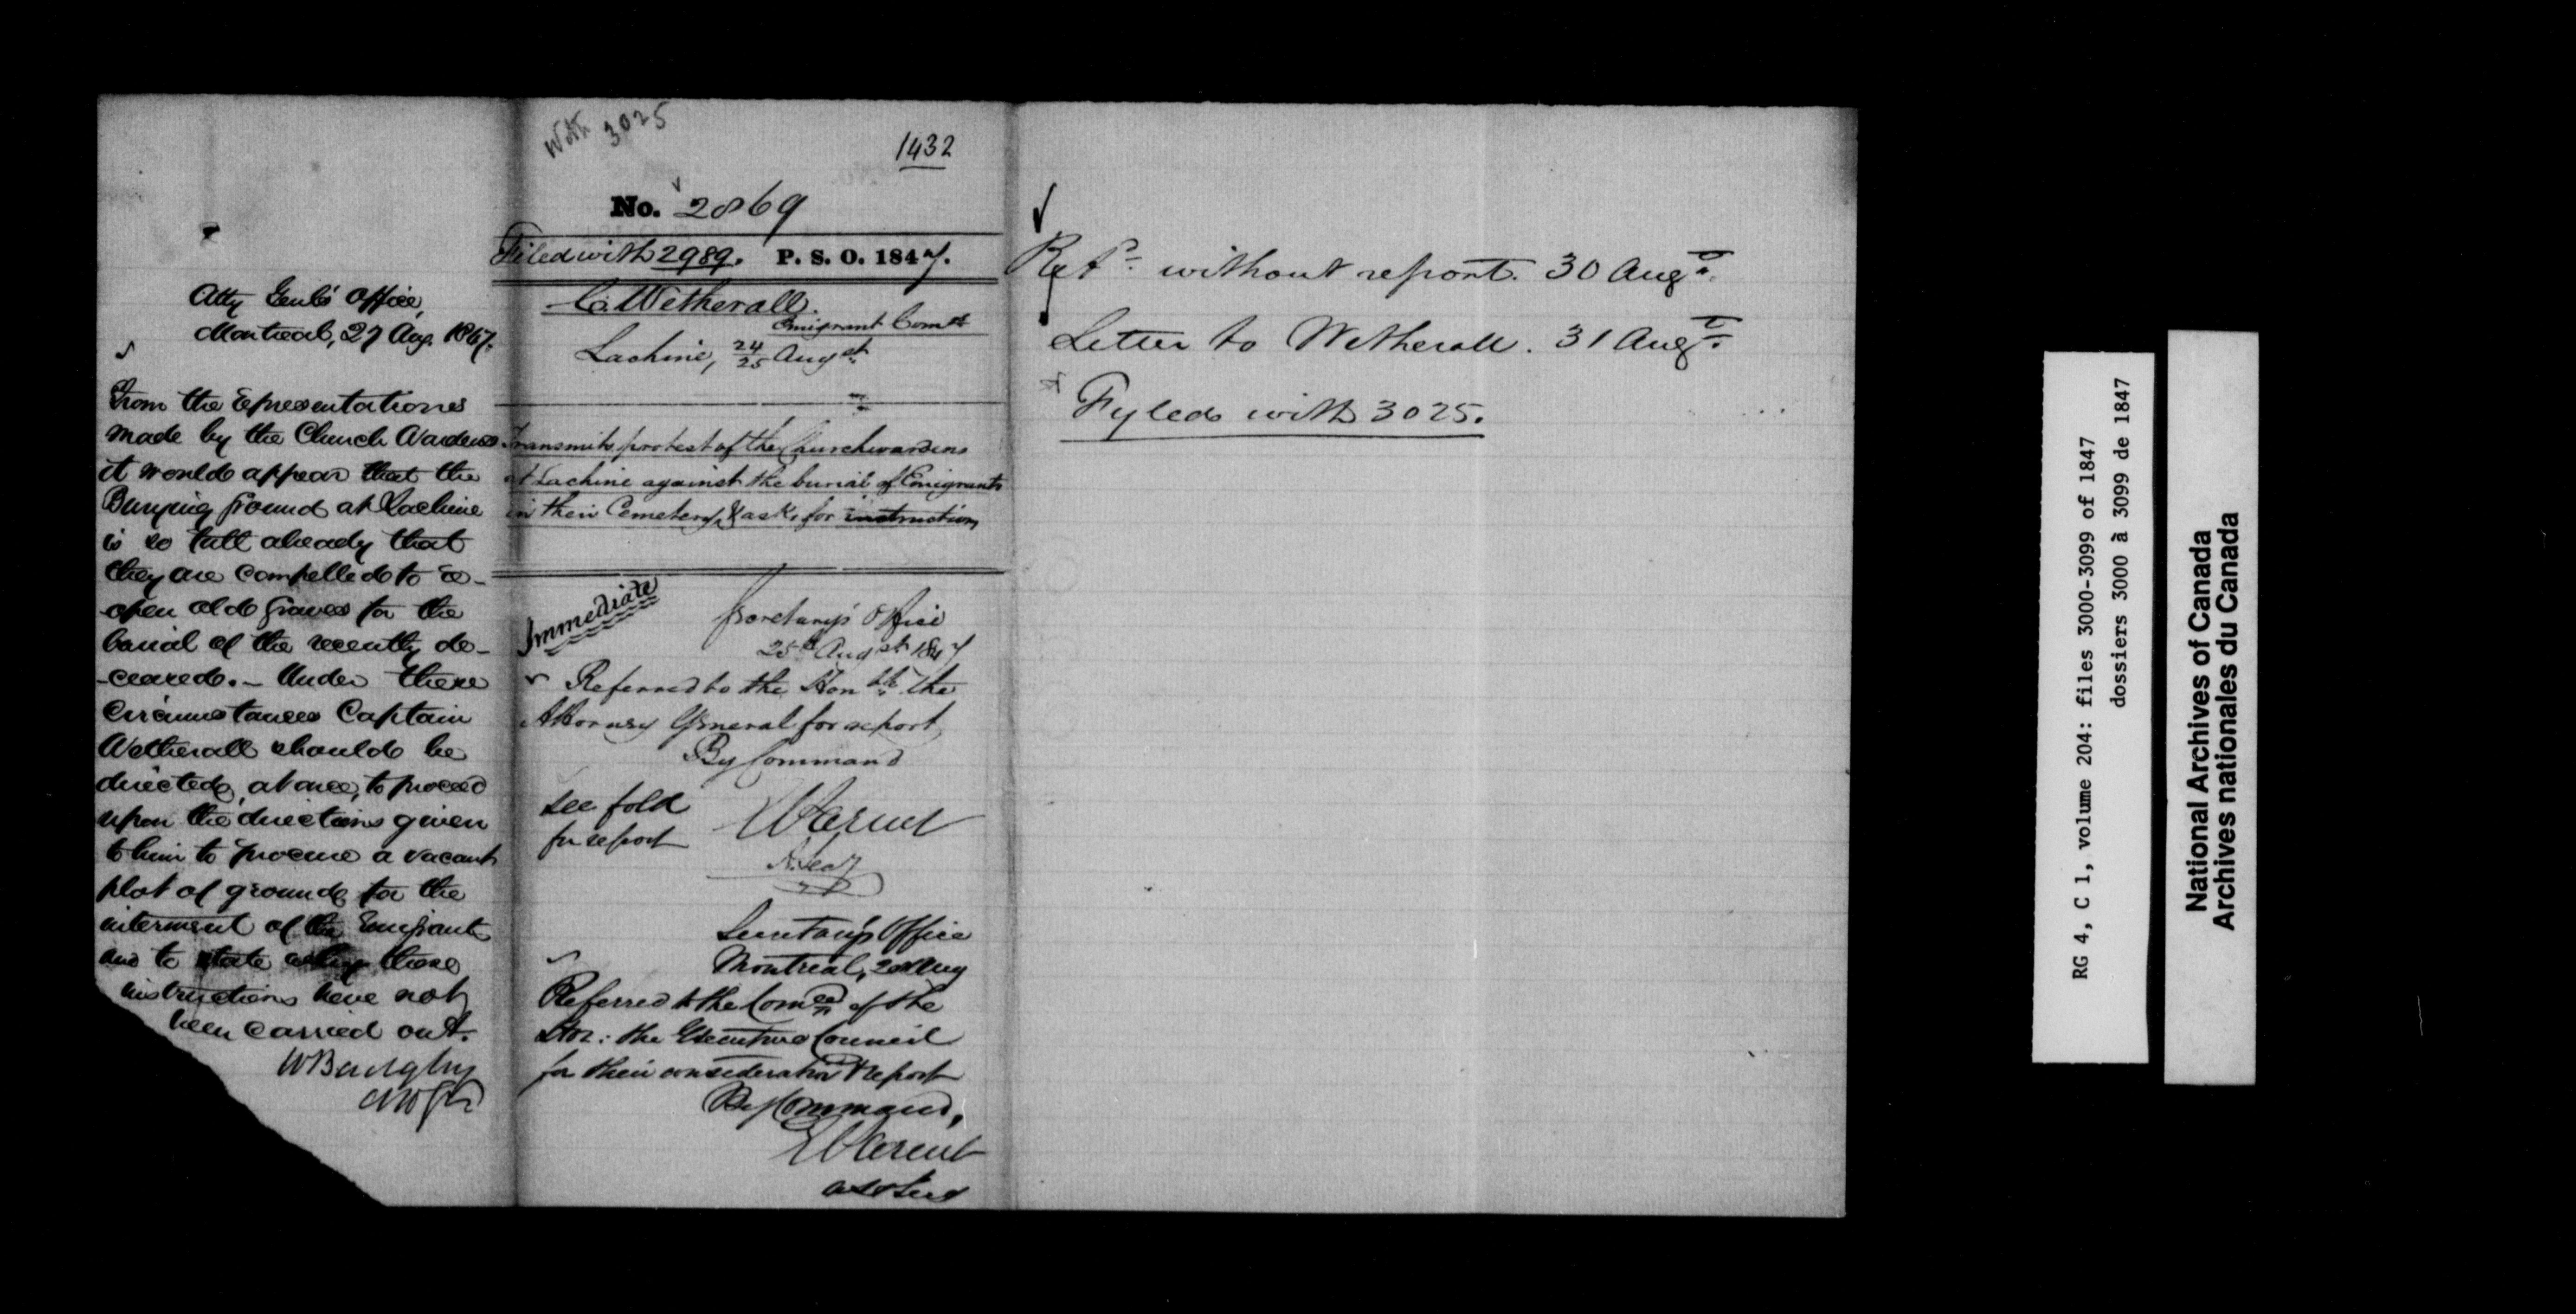 Atty Genl's Office,
Montreal, 27 Aug. 1847.
From the representations
made by the Church Wardens
it would appear that the
Burying ground at Lachine
is so full already that
they are compelled to re-
-open old graves for the
burial of the recently de-
-ceased. - Under these
Circumstances Captain
Wetherall should be
directed, at once, to proceed
upon the directions given
to him to procure a vacant
plot of ground for the
interment of the Emigrants
and to state why those
instructions have not
been carried out.
With 3025
1432
No. 2869
Filed with 2989. P. S. O. 1847.
C. Wetherall.
Emigrant Comt
Lachine, 24/25 Augst
Transmits protest of the Churchwardens
at Lachine against the burial of Emigrants
in their Cemetery, & asks for instruction
Immediate
Secretary's Office
25th Augst 1847
Referred to the Honble The
Attorney General for report
By Command
see fold
for report
E Parent
A. Secy
Secretary's Office
Montreal, Aug
Referred to the Comee of the
Hon: the Executive Council
for their consideration & report
By Command,
E Parent
Asst Secy
Retd without report. 30 Augt.
Letter to Wetherall. 31 Augt.
Fyled with 3025.
RG 4, C 1, volume 204: files 3000-3099 of 1847
dossiers 3000 à 3099 de 1847
National Archives of Canada
Archives nationales du Canada